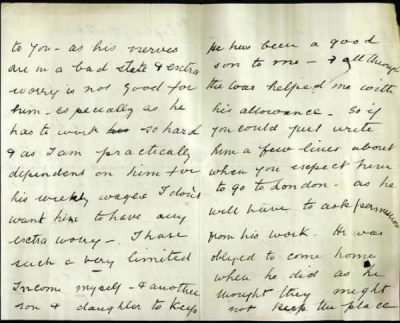 to you - as his nerves
are in a bad state & extra
worry is not good for
him - especially as he
has to work so hard
& as I am practically
dependent on him for
his weekly wages I don't
want him to have any
extra worry - I have
such a very limited
Income myself - & another
son & daughter to keep
He has been a good
son to me - & all through
the war helped me with
his allowance - So if
you could just write
him a few lines about
when you expect him
to go to London - as he
will have to ask permission
from his work. He was
obliged to come home
when he did as he
thought they might
not keep the place